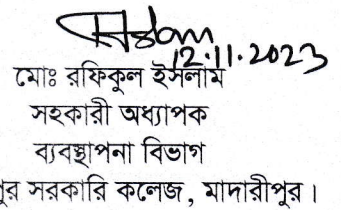 Islam
12.11.2023
মোঃ রফিকুল ইসলাম
সহকারী অধ্যাপক
ব্যবস্থাপনা বিভাগ
সরকারি কলেজ, মাদারীপুর।